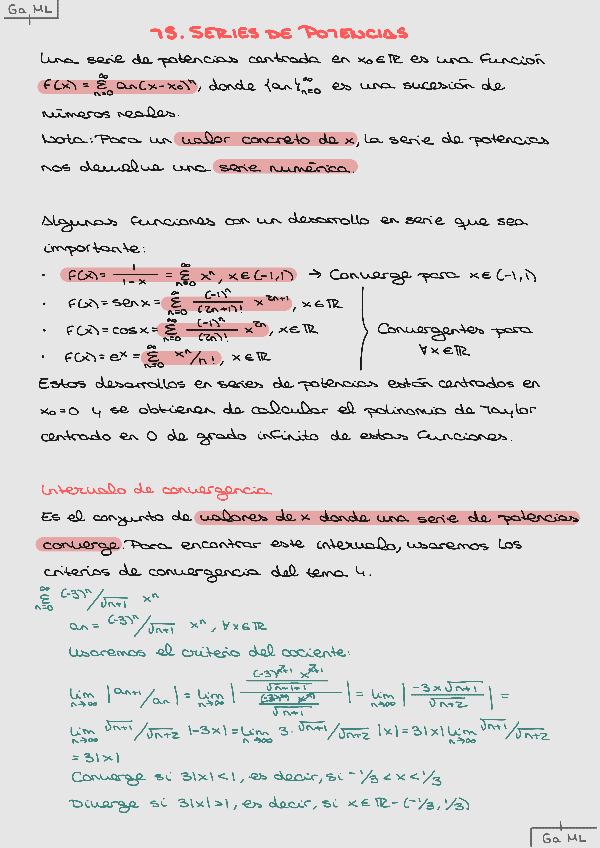 Ga ML
T8. SERIES DE POTENCIAS
Una serie de potencias centrada en x₀∈ℝ es una función
f(x) = ∑_{n=0}^{∞} an(x-x₀)ⁿ, donde {an}_{n=0}^{∞} es una sucesión de
números reales.
Nota: Para un valor concreto de x, la serie de potencias
nos devuelve una serie numérica.
Algunas funciones con un desarrollo en serie que sea
importante:
· f(x) = 1/(1-x) = ∑_{n=0}^{∞} xⁿ, x∈(-1,1) → Converge para x∈(-1,1)
· f(x) = sen x = ∑_{n=0}^{∞} (-1)ⁿ/(2n+1)! x^{2n+1}, x∈ℝ
· f(x) = cos x = ∑_{n=0}^{∞} (-1)ⁿ/(2n)! x^{2n}, x∈ℝ
· f(x) = eˣ = ∑_{n=0}^{∞} xⁿ/n!, x∈ℝ
Convergentes para
∀x∈ℝ
Estos desarrollos en series de potencias están centrados en
x₀=0 y se obtienen de calcular el polinomio de Taylor
centrado en 0 de grado infinito de estas funciones.
Intervalo de convergencia
Es el conjunto de valores de x donde una serie de potencias
converge. Para encontrar este intervalo, usaremos los
criterios de convergencia del tema 4.
∑_{n=0}^{∞} (-3)ⁿ/√(n+1) xⁿ
an = (-3)ⁿ/√(n+1) xⁿ, ∀x∈ℝ
Usaremos el criterio del cociente:
lim_{n→∞} |an+1/an| = lim_{n→∞} | ((-3)^{n+1} x^{n+1}/√(n+1+1)) / ((-3)ⁿ xⁿ/√(n+1)) | = lim_{n→∞} | -3x√(n+1)/√(n+2) | =
lim_{n→∞} √(n+1)/√(n+2) |-3x| = lim_{n→∞} 3·√(n+1)/√(n+2) |x| = 3|x| lim_{n→∞} √(n+1)/√(n+2)
= 3|x|
Converge si 3|x|<1, es decir, si -1/3 < x < 1/3
Diverge si 3|x|>1, es decir, si x∈ℝ-(-1/3, 1/3)
Ga ML